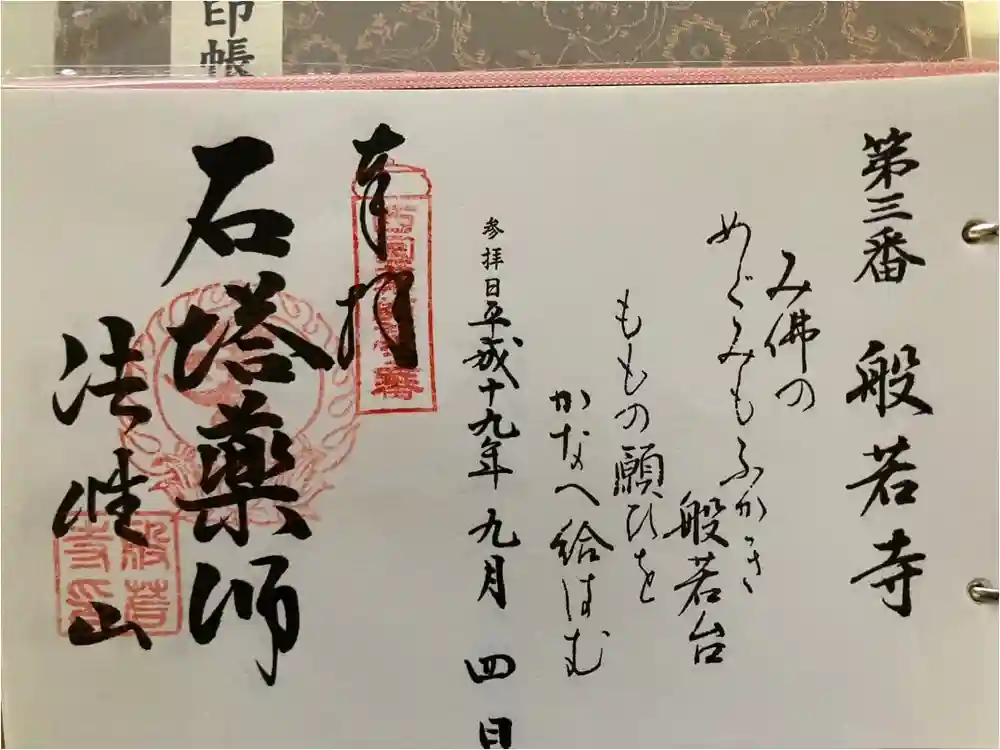 印帳
第三番 般若寺
み佛の
めぐみもふかき
般若台
ももの願ひを
かなへ給はむ
参拝日平成十九年 九月 四日
奉拝
石塔薬師
法性山
般若
寺印